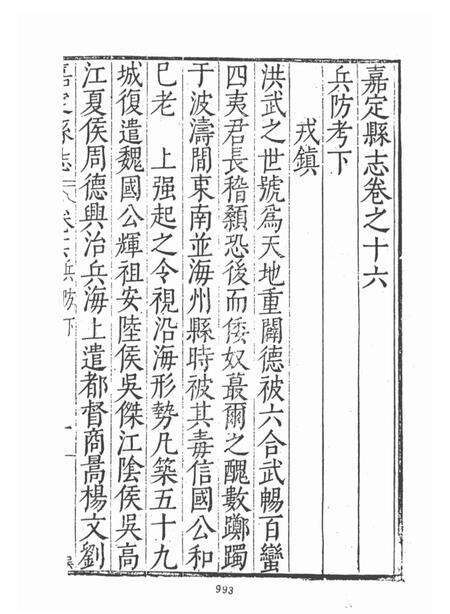 嘉定縣志卷之十六
兵防考下
戎鎮
洪武之世號為天地重闢德被六合武暢百蠻
四夷君長稽顙恐後而倭奴蕞爾之醜數躑躅
于波濤間東南並海州縣時被其毒信國公和
已老 上强起之令視沿海形勢凡築五十九
城復遣魏國公輝祖安陸侯吳傑江陰侯吳高
江夏侯周德興治兵海上遣都督商暠楊文劉
嘉定縣志 卷十六兵防下 一
993